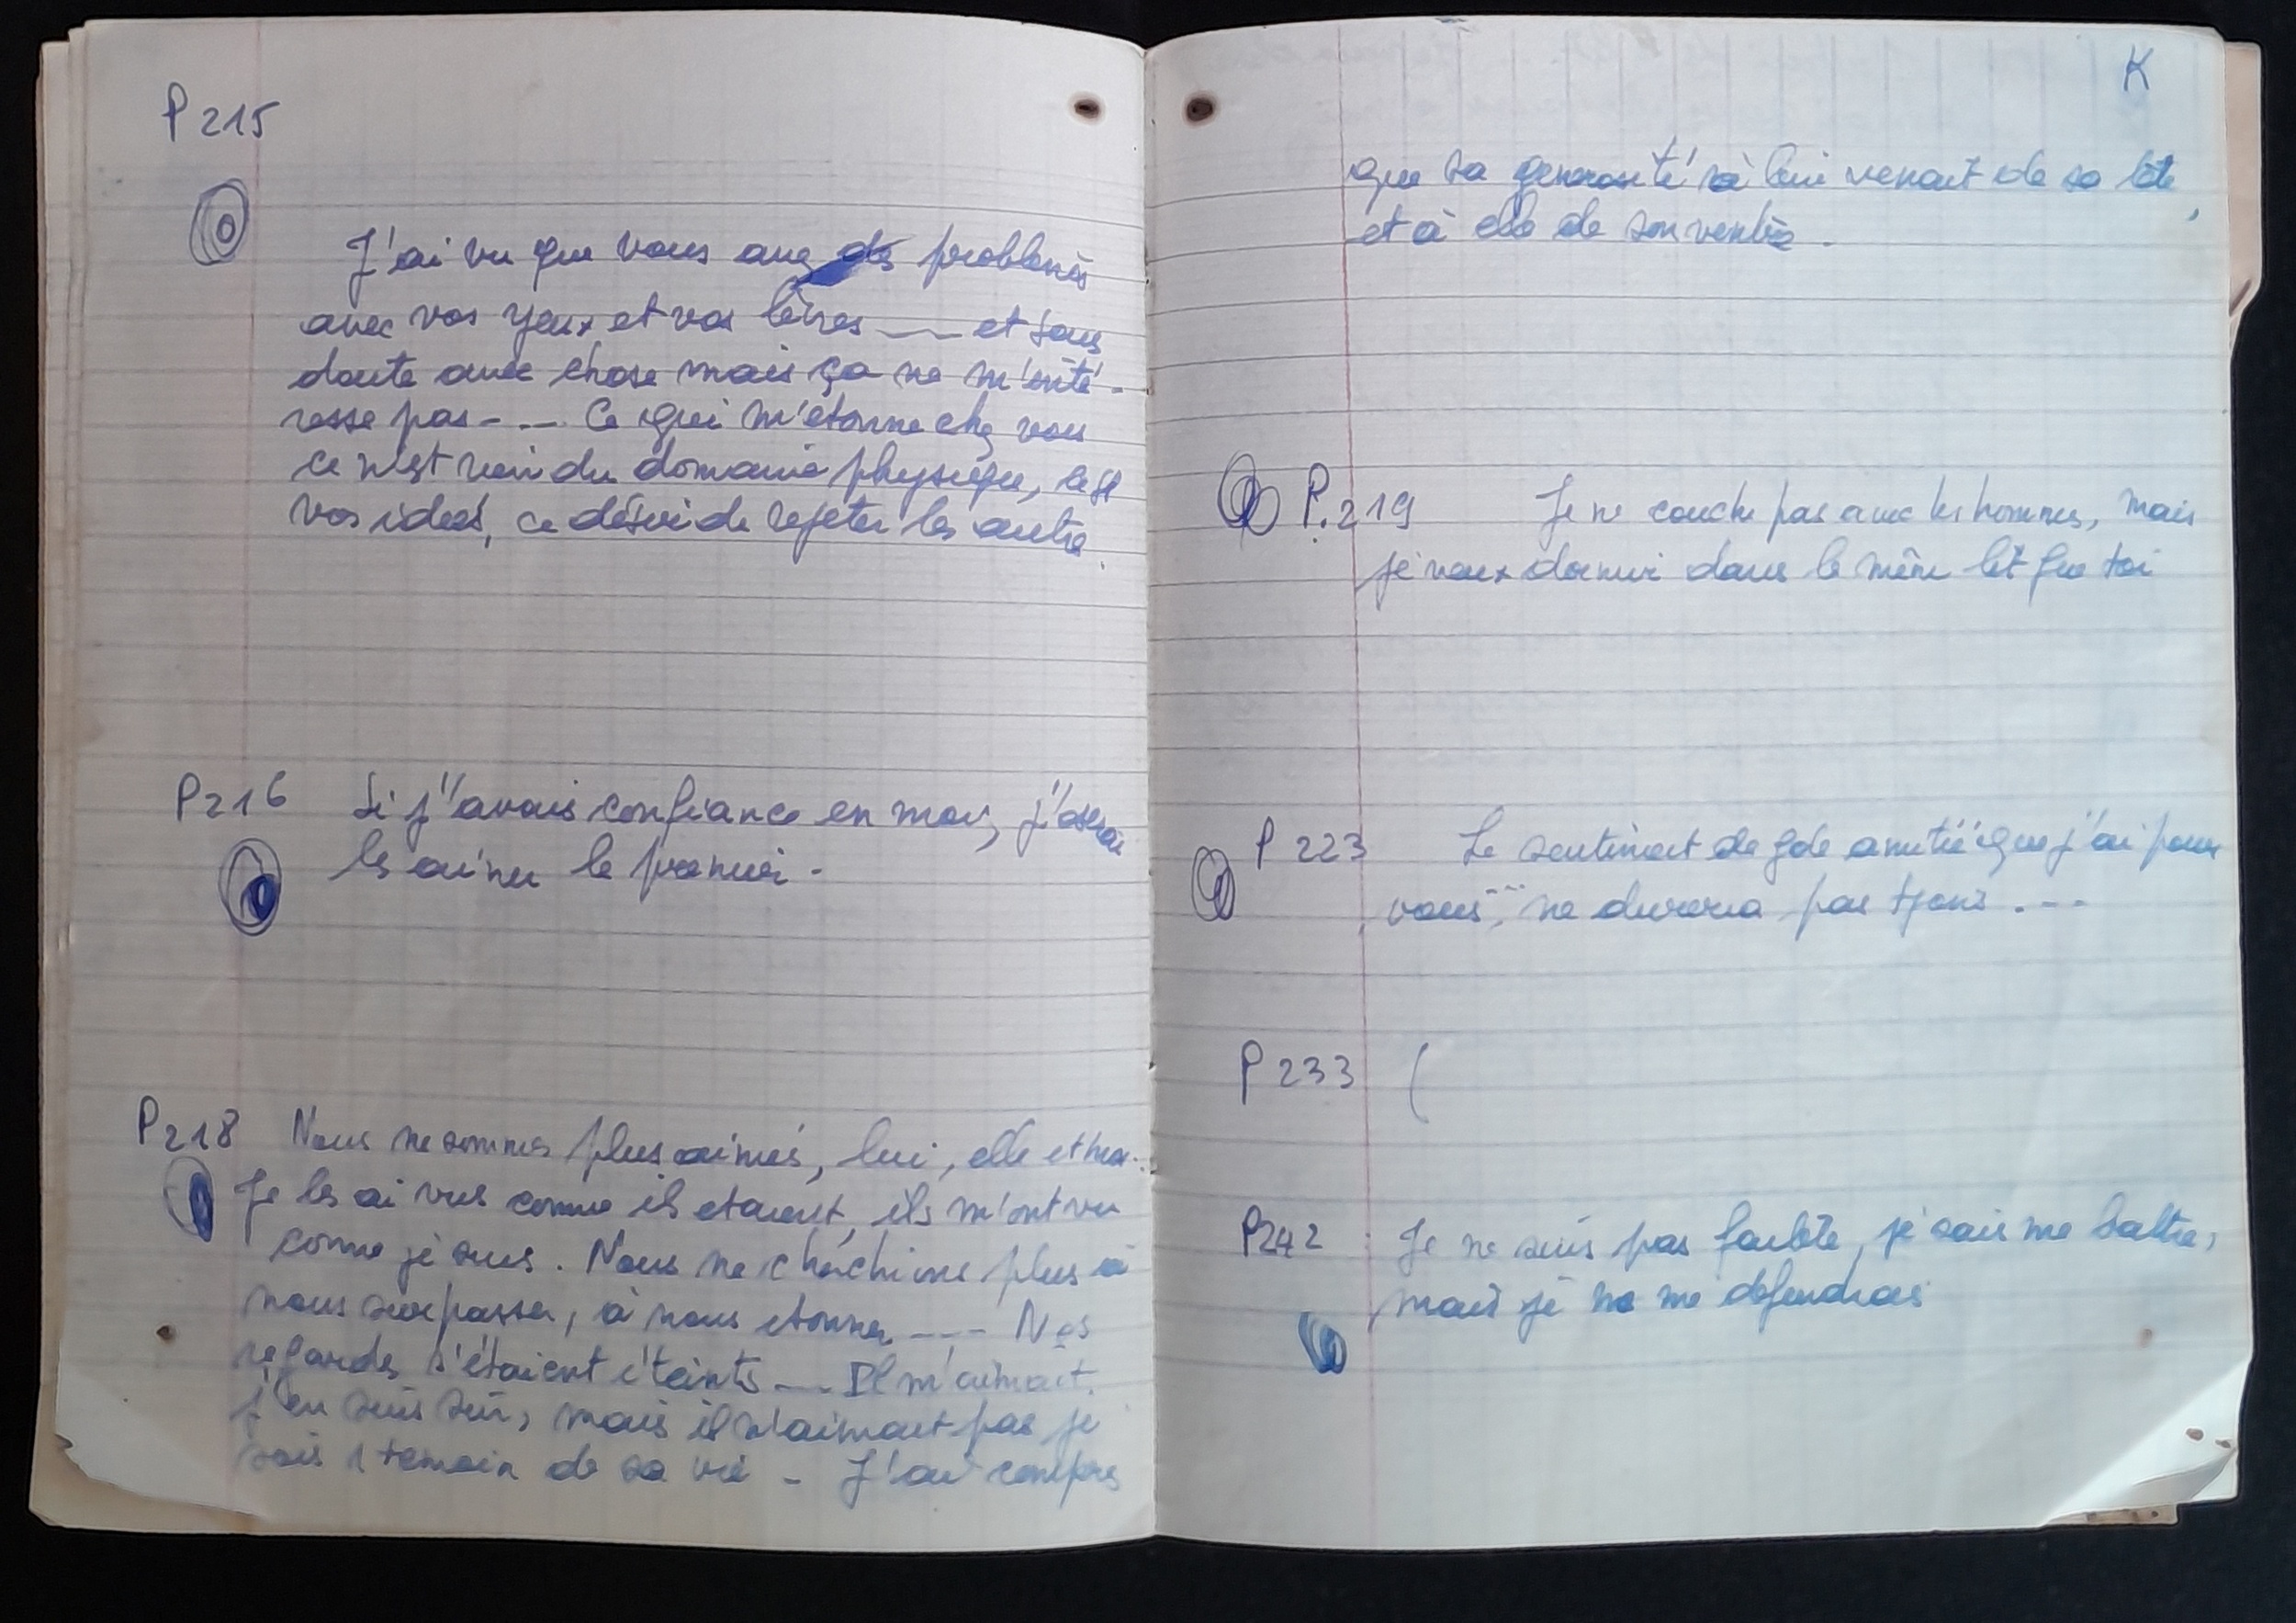 P 215
J'ai vu que vous avez des problèmes
avec vos yeux et vos lèvres --- et sans
doute autre chose mais ça ne m'inté-
resse pas - -- Ce qui m'étonne chez vous
ce n'est rien du domaine physique, c'est
vos idées, ce désir de rejeter les autre.
P216 Si j'avais confiance en moi, j'oserai
les aimer le premier.
P218 Nous ne sommes plus aimés, lui, elle et moi.
Je les ai vus comme ils etaient, ils m'ont vu
comme je suis. Nous ne cherchions plus à
nous surpasser, à nous etonner --- Nos
regards s'étaient éteints --- Il m'aimait.
j'en suis sûr, mais il n'aimait pas je
sois 1 temoin de sa vie - J'ai compris
K
que sa générosité à lui venait de sa tête,
et à elle de son ventre.
P.219 Je ne couche pas avec les hommes, mais
je veux dormir dans le même lit que toi
P 223 Le sentiment de gde amitié que j'ai pour
vous, ne durera pas tjours . --
P 233 (
P242 Je ne suis pas faible, je sais me battre,
mais je ne me défendrais